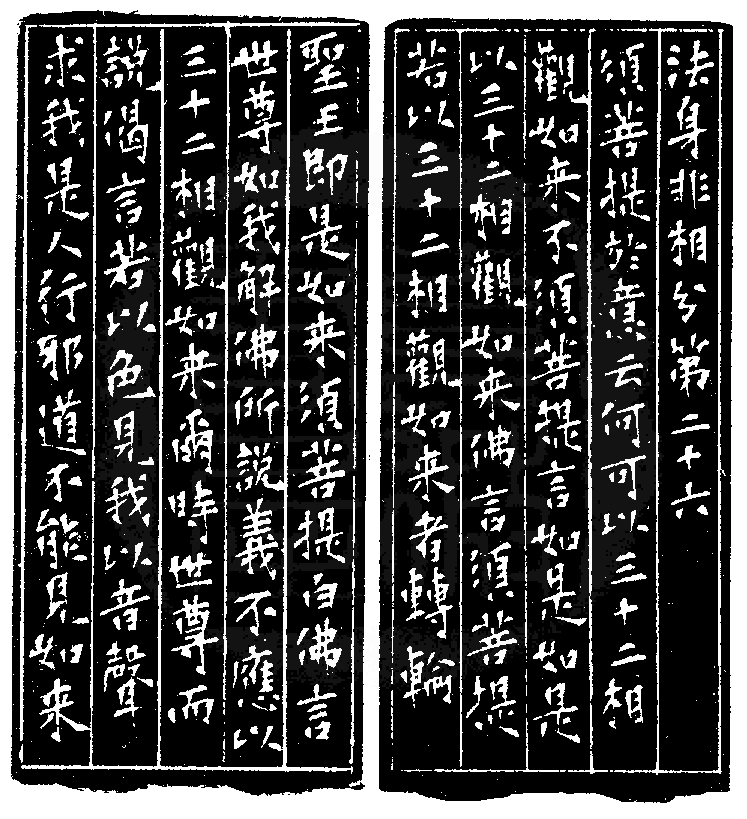 法身非相分第二十六
須菩提於意云何可以三十二相
觀如来不須菩提言如是如是
以三十二相觀如来佛言須菩提
若以三十二相觀如来者轉輪
聖王即是如来須菩提白佛言
世尊如我解佛所說義不應以
三十二相觀如来爾時世尊而
說偈言若以色見我以音聲
求我是人行邪道不能見如来